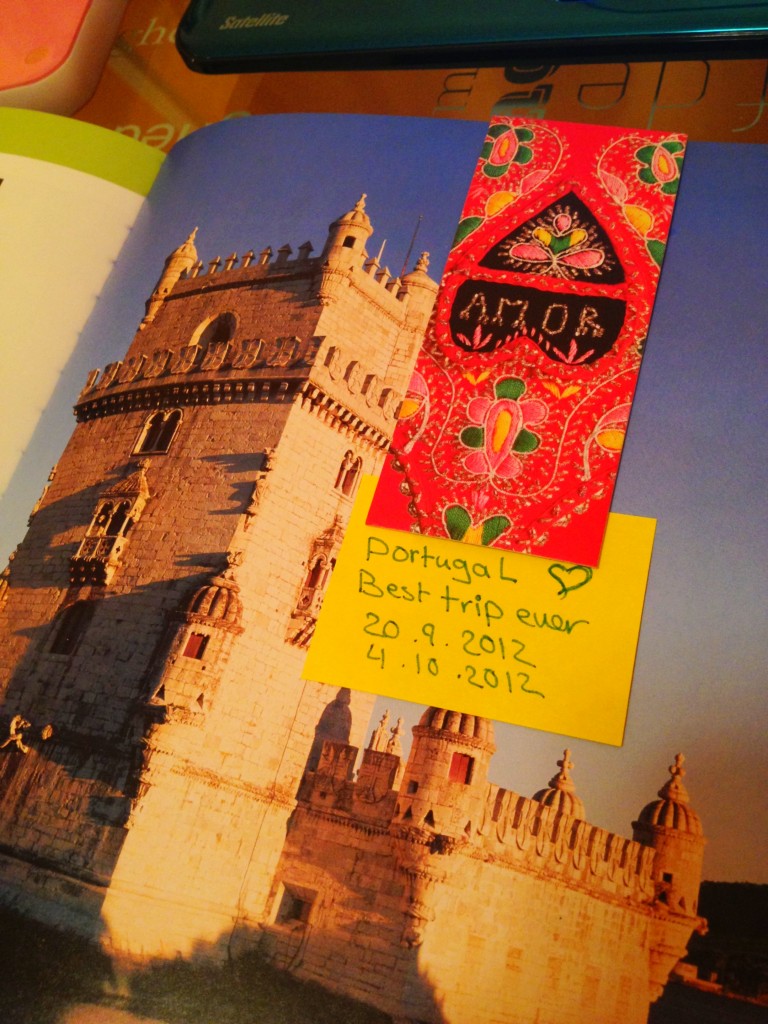 Satellite
AMOR
Portugal
Best trip ever
20.9.2012
4.10.2012